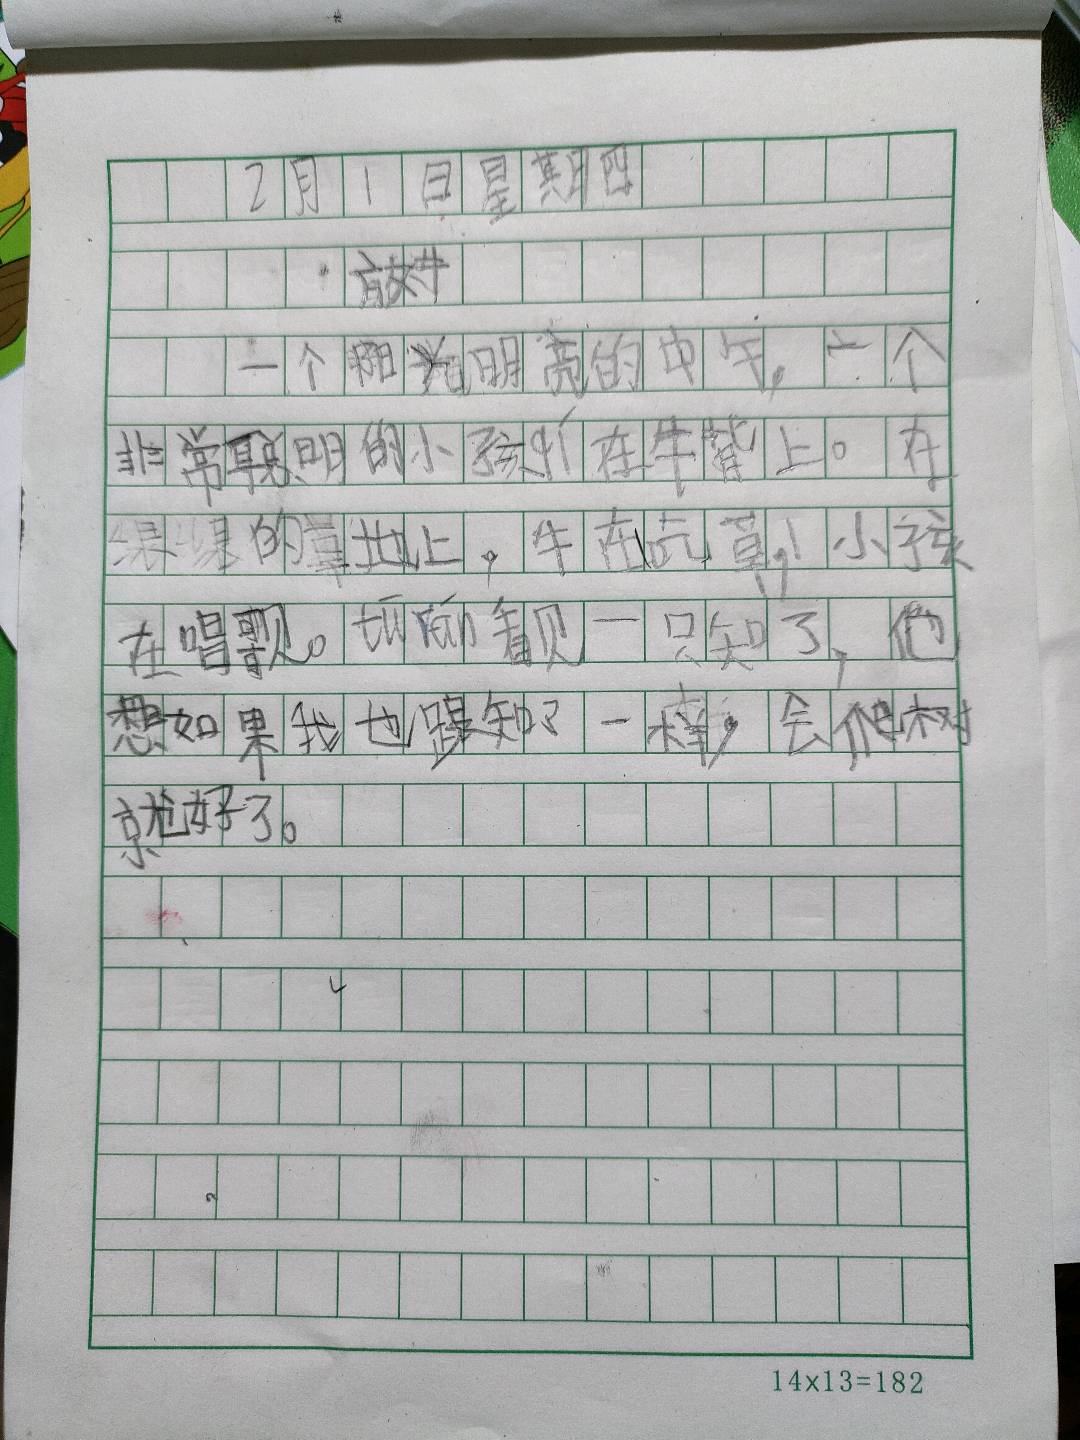 2月1日星期四
放牛
一个阳光明亮的中午,一个
非常聪明的小孩趴在牛背上。在
绿绿的草地上,牛在吃草,小孩
在唱歌。看见一只知了,他
想如果我也跟知了一样,会爬树
就好了。
14x13=182